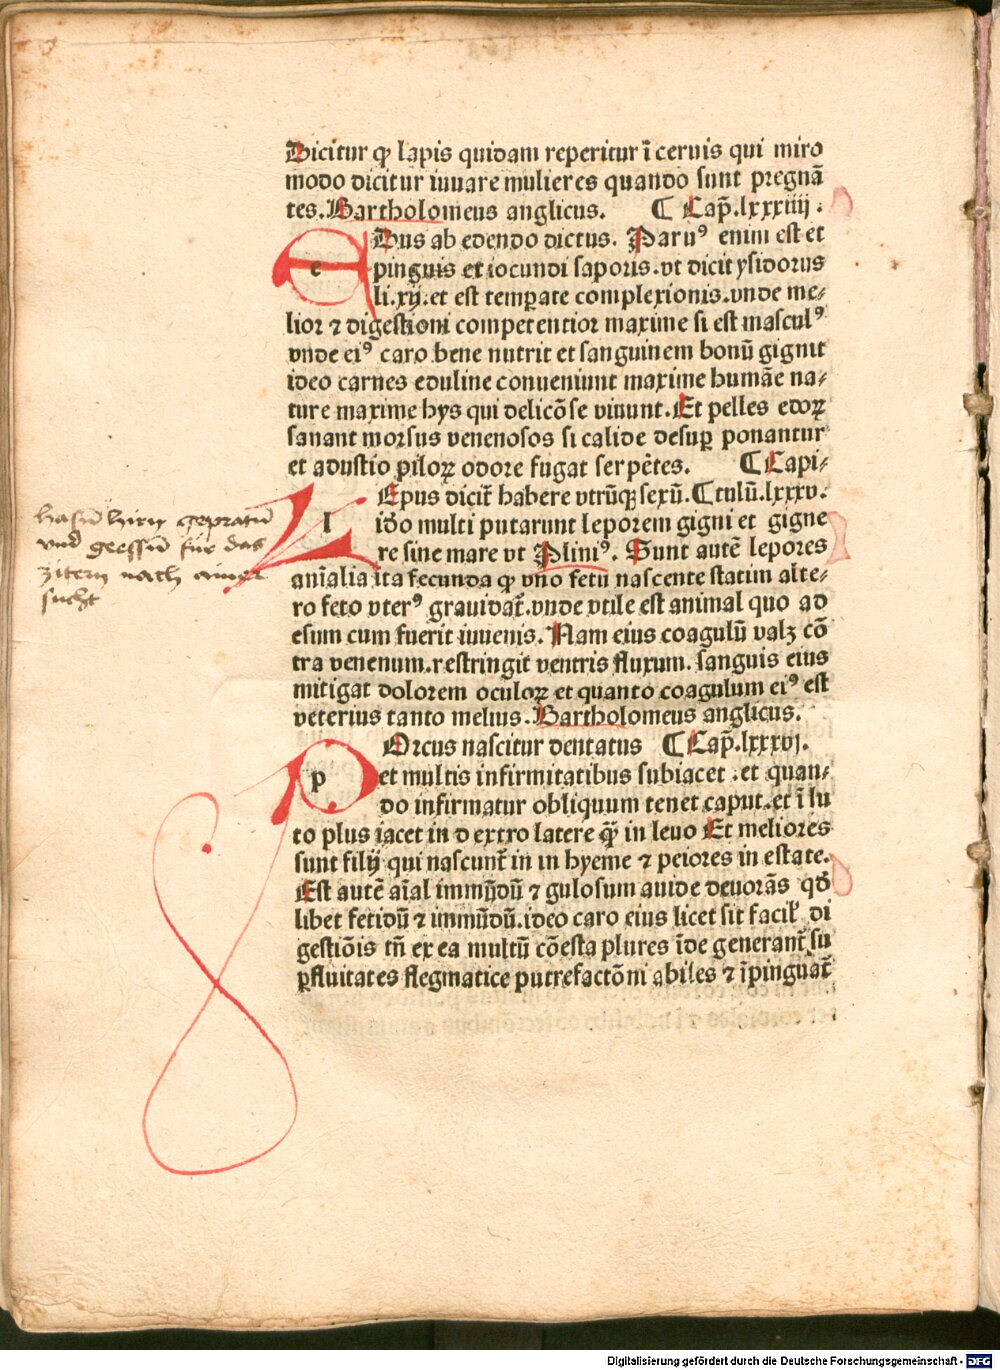 Dicitur ꝙ lapis quidam reperitur ī ceruis qui miro
modo dicitur iuuare mulieres quando sunt pregnā
tes. Bartholomeus anglicus. ¶ Cap̄. lxxxiiij.
e Dus ab edendo dictus. Paruꝰ enim est et
pinguis et iocundi saporis. vt dicit ysidorus
li. xij. et est temꝑate complexionis. vnde me⸗
lior ⁊ digestioni competentior maxime si est masculꝰ
vnde eiꝰ caro bene nutrit et sanguinem bonū gignit
ideo carnes eduline conueniunt maxime humāe na⸗
ture maxime hys qui delicōse viuunt. Et pelles edoꝝ
sanant morsus venenosos si calide desuꝑ ponantur
et adustio piloꝝ odore fugat serpētes. ¶ Capi⸗
l Epus dicit̄ habere vtrūqꝫ sexū. ¶ tulū. lxxxv.
ido multi putarunt leporem gigni et gigne
re sine mare vt Pliniꝰ. Sunt autē lepores
hasn̄ hirn gepratn̄
vnd geessn̄ fur das
zitern nach ainer
sucht
anīalia ita fecunda ꝙ vno fetu nascente statim alte⸗
ro feto vterꝰ grauidat̄. vnde vtile est animal quo ad
esum cum fuerit iuuenis. Nam eius coagulū valꝫ cō
tra venenum. restringit ventris fluxum. sanguis eius
mitigat dolorem oculoꝝ et quanto coagulum eiꝰ est
veterius tanto melius. Bartholomeus anglicus.
p Orcus nascitur dentatus ¶ Cap̄. lxxxvj.
et multis infirmitatibus subiacet. et quan⸗
do infirmatur obliquum tenet caput. et ī lu
to plus iacet in dextro latere ꝙ̄ in leuo Et meliores
sunt filij qui nascunt̄ in in hyeme ⁊ peiores in estate.
Est autē aīal immūdū ⁊ gulosum auide deuorās qd̄
libet fetidū ⁊ immūdū. ideo caro eius licet sit facil̓ di
gestiōis tn̄ ex ea multū cōesta plures īde generant̄ su
ꝑfluitates flegmatice putrefactōni abiles ⁊ īpinguat̄
Digitalisierung gefördert durch die Deutsche Forschungsgemeinschaft - DFG